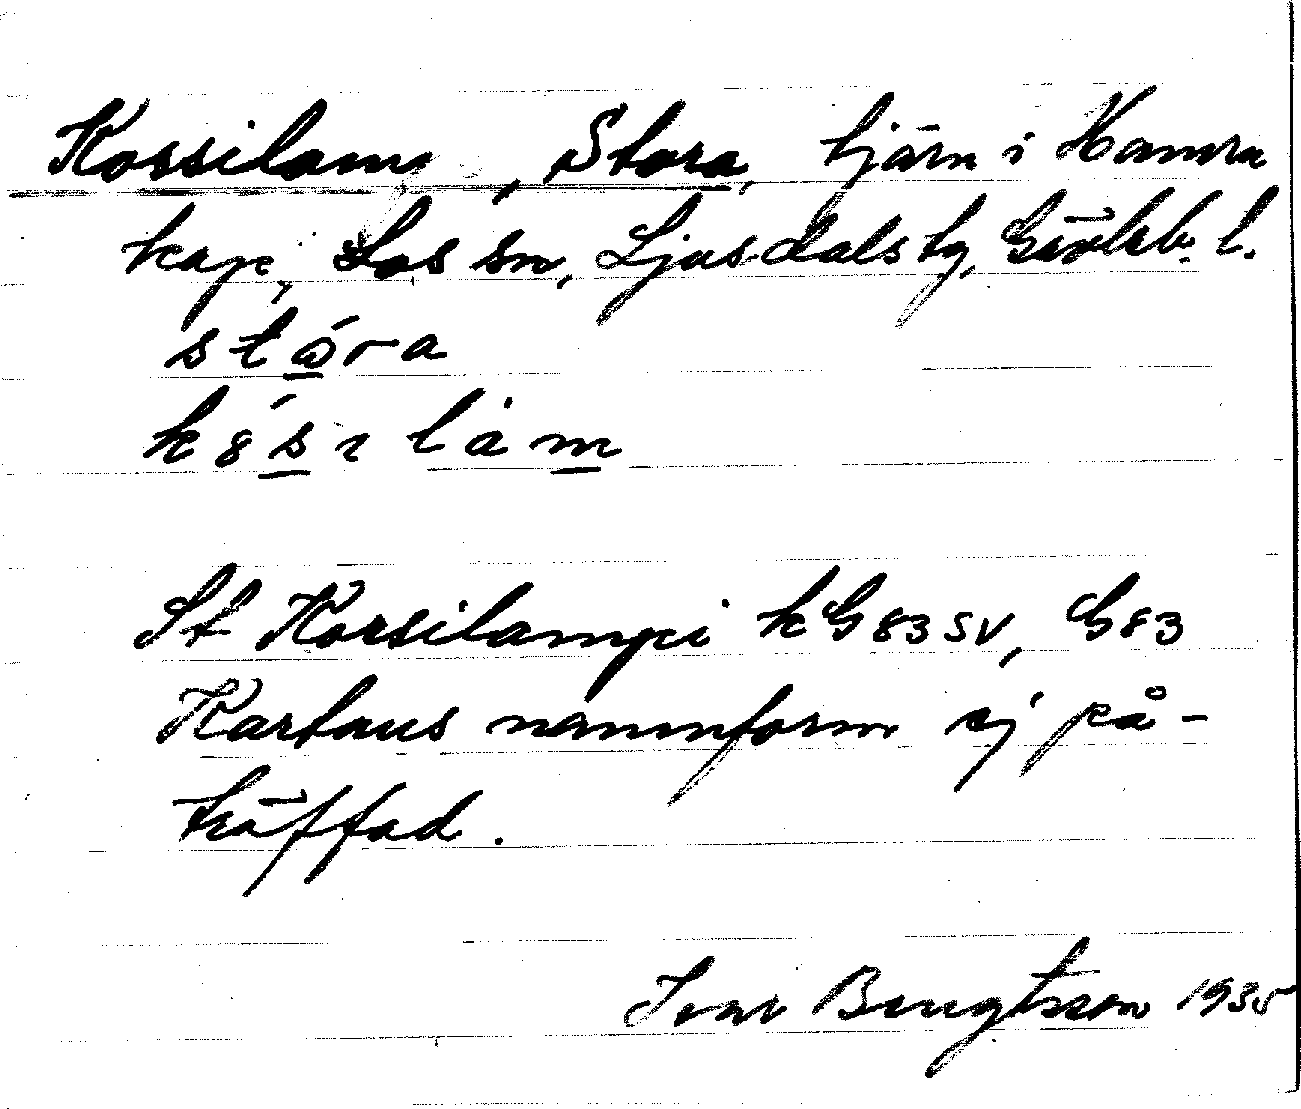 Korsilam, Stora, tjärn i Hamra
kap, Los sn, Ljusdals tg, Gävleb. l.
stǿra
kȣ́sılàm
St Korsilampi kG83SV, G83
Kartans namnform ej på-
träffad.
Ivar Bengtsson 1935